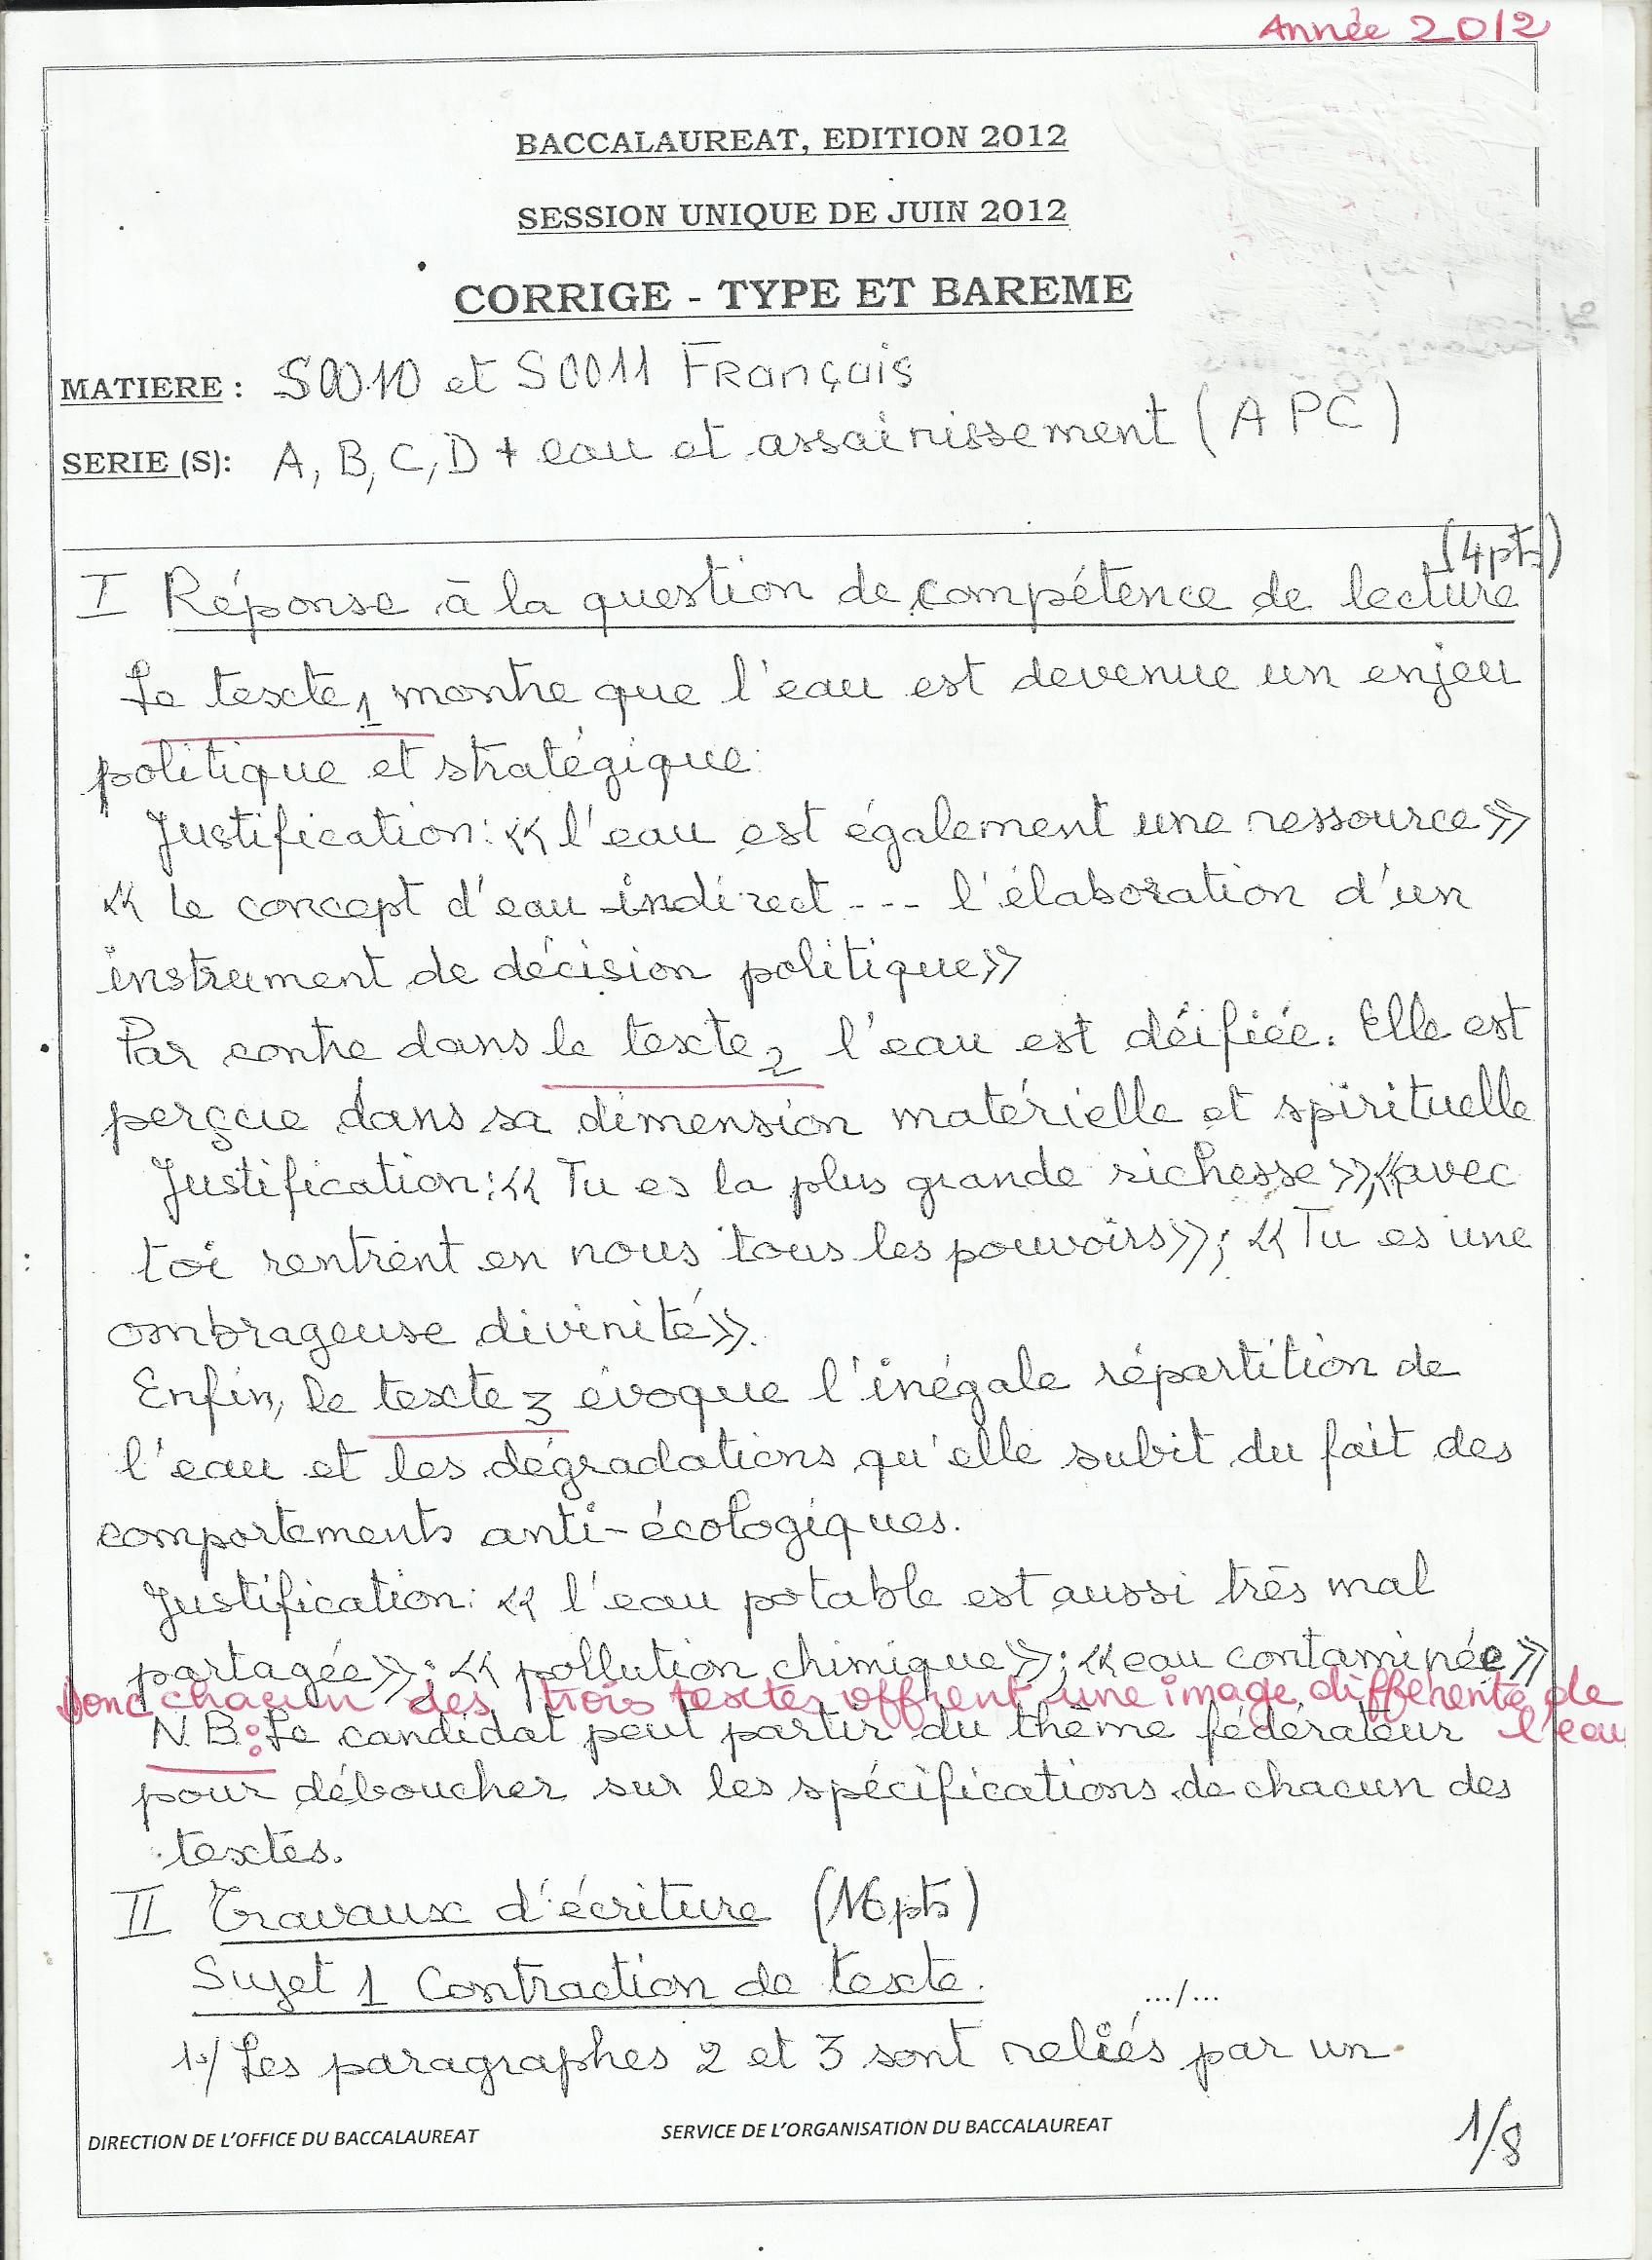 Année 2012
BACCALAUREAT, EDITION 2012
SESSION UNIQUE DE JUIN 2012
CORRIGE - TYPE ET BAREME
MATIERE : S0010 et S0011 Français
SERIE (S): A, B, C, D + eau et assainissement (APC)
(4pts)
I Réponse à la question de compétence de lecture
Le texte 1 montre que l'eau est devenue un enjeu
politique et stratégique.
Justification: « l'eau est également une ressource »
« Le concept d'eau indirect --- l'élaboration d'un
instrument de décision politique »
Par contre dans le texte 2 l'eau est déifiée. Elle est
perçue dans sa dimension matérielle et spirituelle
Justification: « Tu es la plus grande richesse », « avec
toi rentrent en nous tous les pouvoirs »; « Tu es une
ombrageuse divinité ».
Enfin, le texte 3 évoque l'inégale répartition de
l'eau et les dégradations qu'elle subit du fait des
comportements anti-écologiques.
Justification: « l'eau potable est aussi très mal
partagée »; « pollution chimique »; « eau contaminée »
Donc chacun des trois textes offrent une image différente de
l'eau
N.B: Le candidat peut partir du thème fédérateur
pour déboucher sur les spécifications de chacun des
textes.
II Travaux d'écriture (16pts)
Sujet 1 Contraction de texte.
.../...
1°/ Les paragraphes 2 et 3 sont reliés par un
DIRECTION DE L'OFFICE DU BACCALAUREAT SERVICE DE L'ORGANISATION DU BACCALAUREAT
1/8